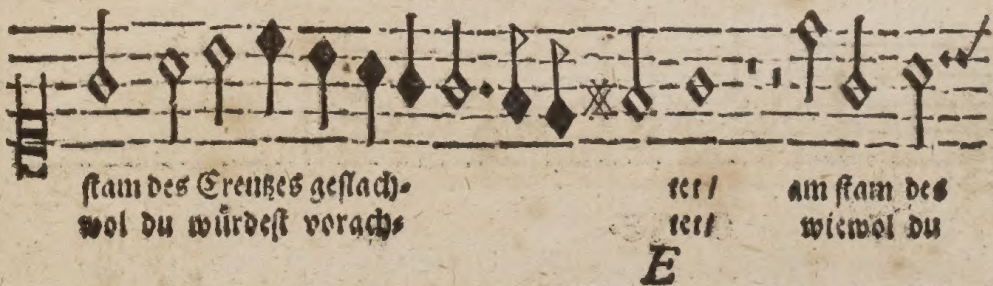 stam des Creutzes geslach⸗ tet/ am stam des
wol du würdest vorach⸗ tet/ wiewol du
E